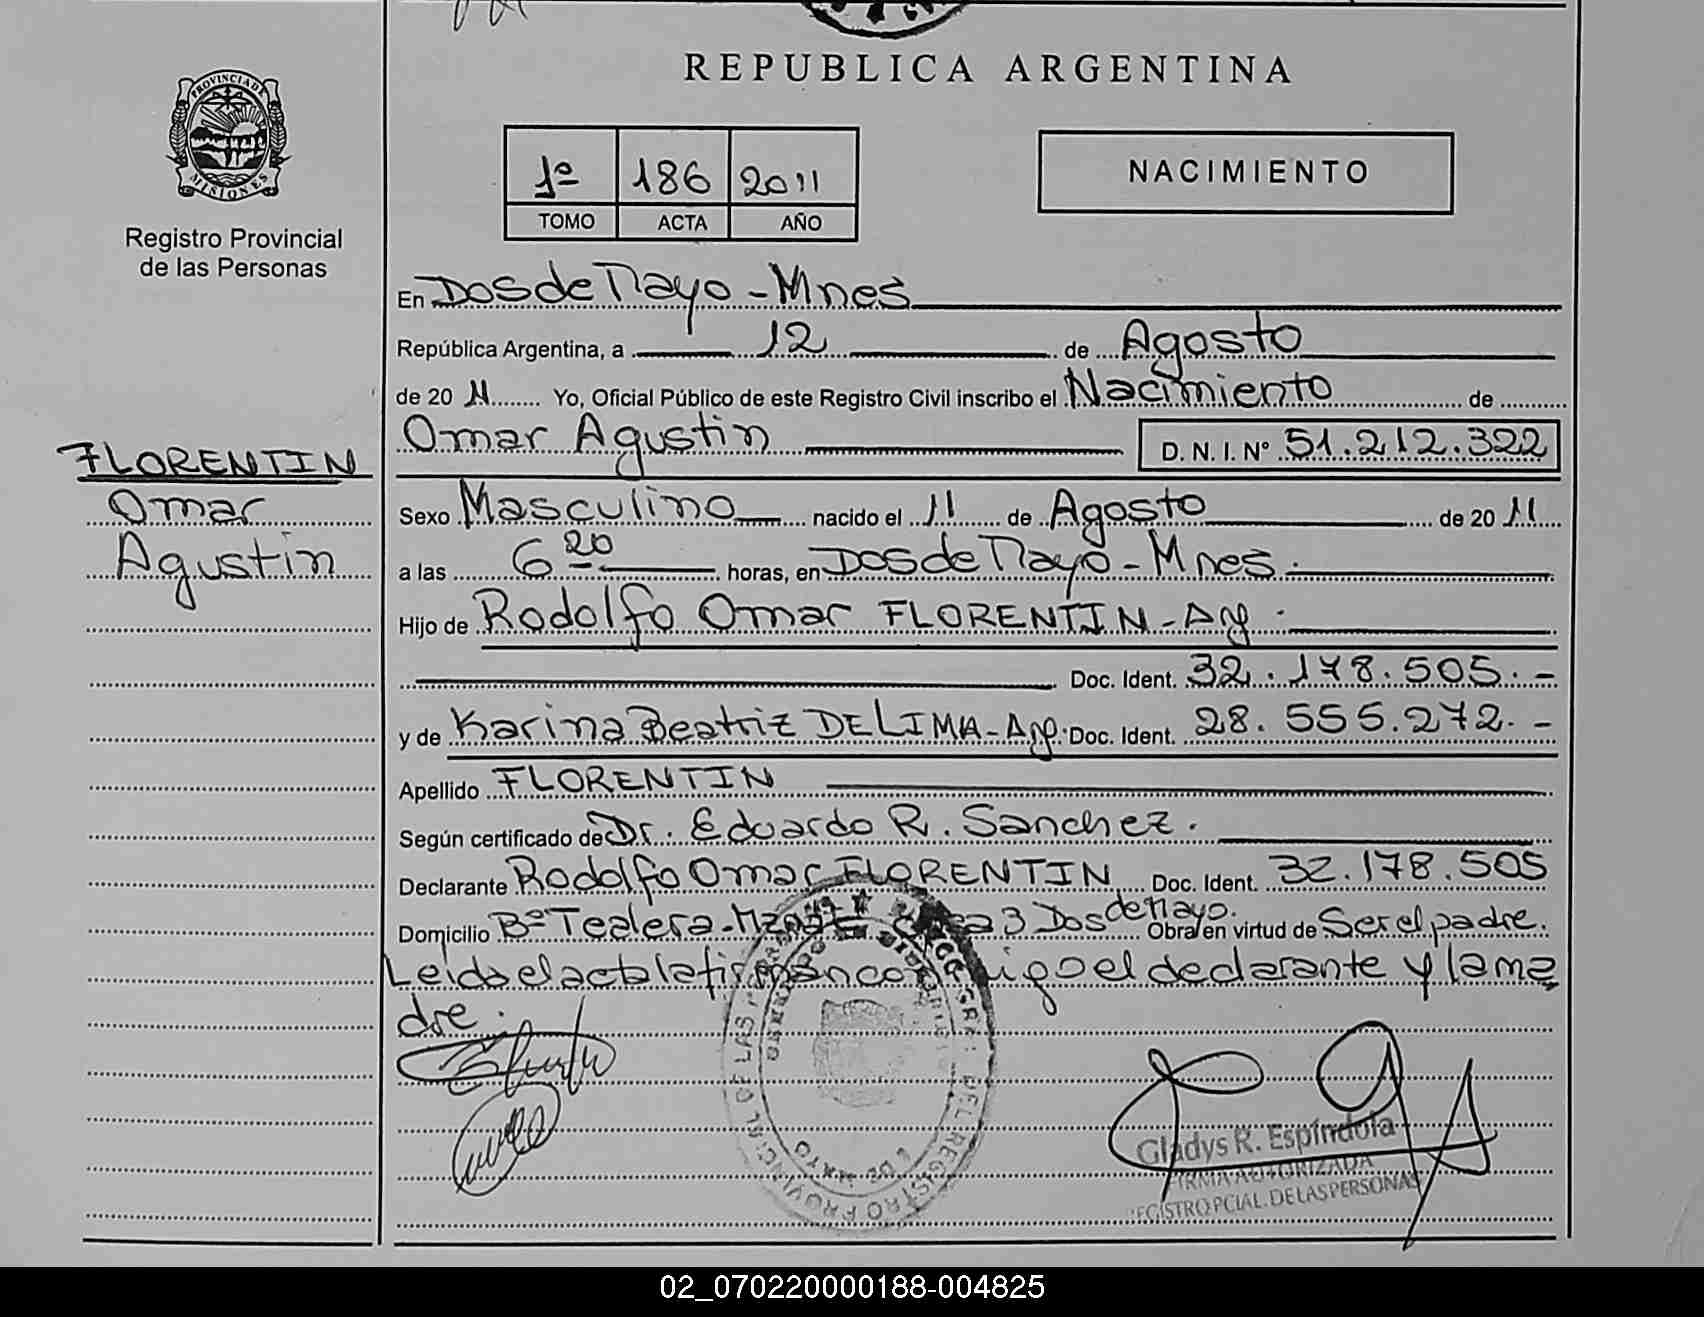 REPUBLICA ARGENTINA
PROVINCIA DE MISIONES
Registro Provincial
de las Personas
1º 186 2011
TOMO ACTA AÑO
NACIMIENTO
En Dos de Mayo - Mnes
República Argentina, a 12 de Agosto
de 20 11 Yo, Oficial Público de este Registro Civil inscribo el Nacimiento de
Omar Agustin D. N. I. Nº 51.212.322
FLORENTIN
Omar
Agustin
Sexo Masculino nacido el 11 de Agosto de 20 11
a las 6 20 horas, en Dos de Mayo - Mnes.
Hijo de Rodolfo Omar FLORENTIN - Arg.
Doc. Ident. 32.178.505.-
y de Karina Beatriz DE LIMA - Arg. Doc. Ident. 28.555.272.-
Apellido FLORENTIN
Según certificado de Dr. Eduardo R. Sanchez.
Declarante Rodolfo Omar FLORENTIN Doc. Ident. 32.178.505
Domicilio Bº Tealera - casa 3 Dos de Mayo. Obra en virtud de Ser el padre.
Leida el acta la firman conmigo el declarante y la ma
dre.
Gladys R. Espíndola
FIRMA AUTORIZADA
REGISTRO PCIAL. DE LAS PERSONAS
02_070220000188-004825